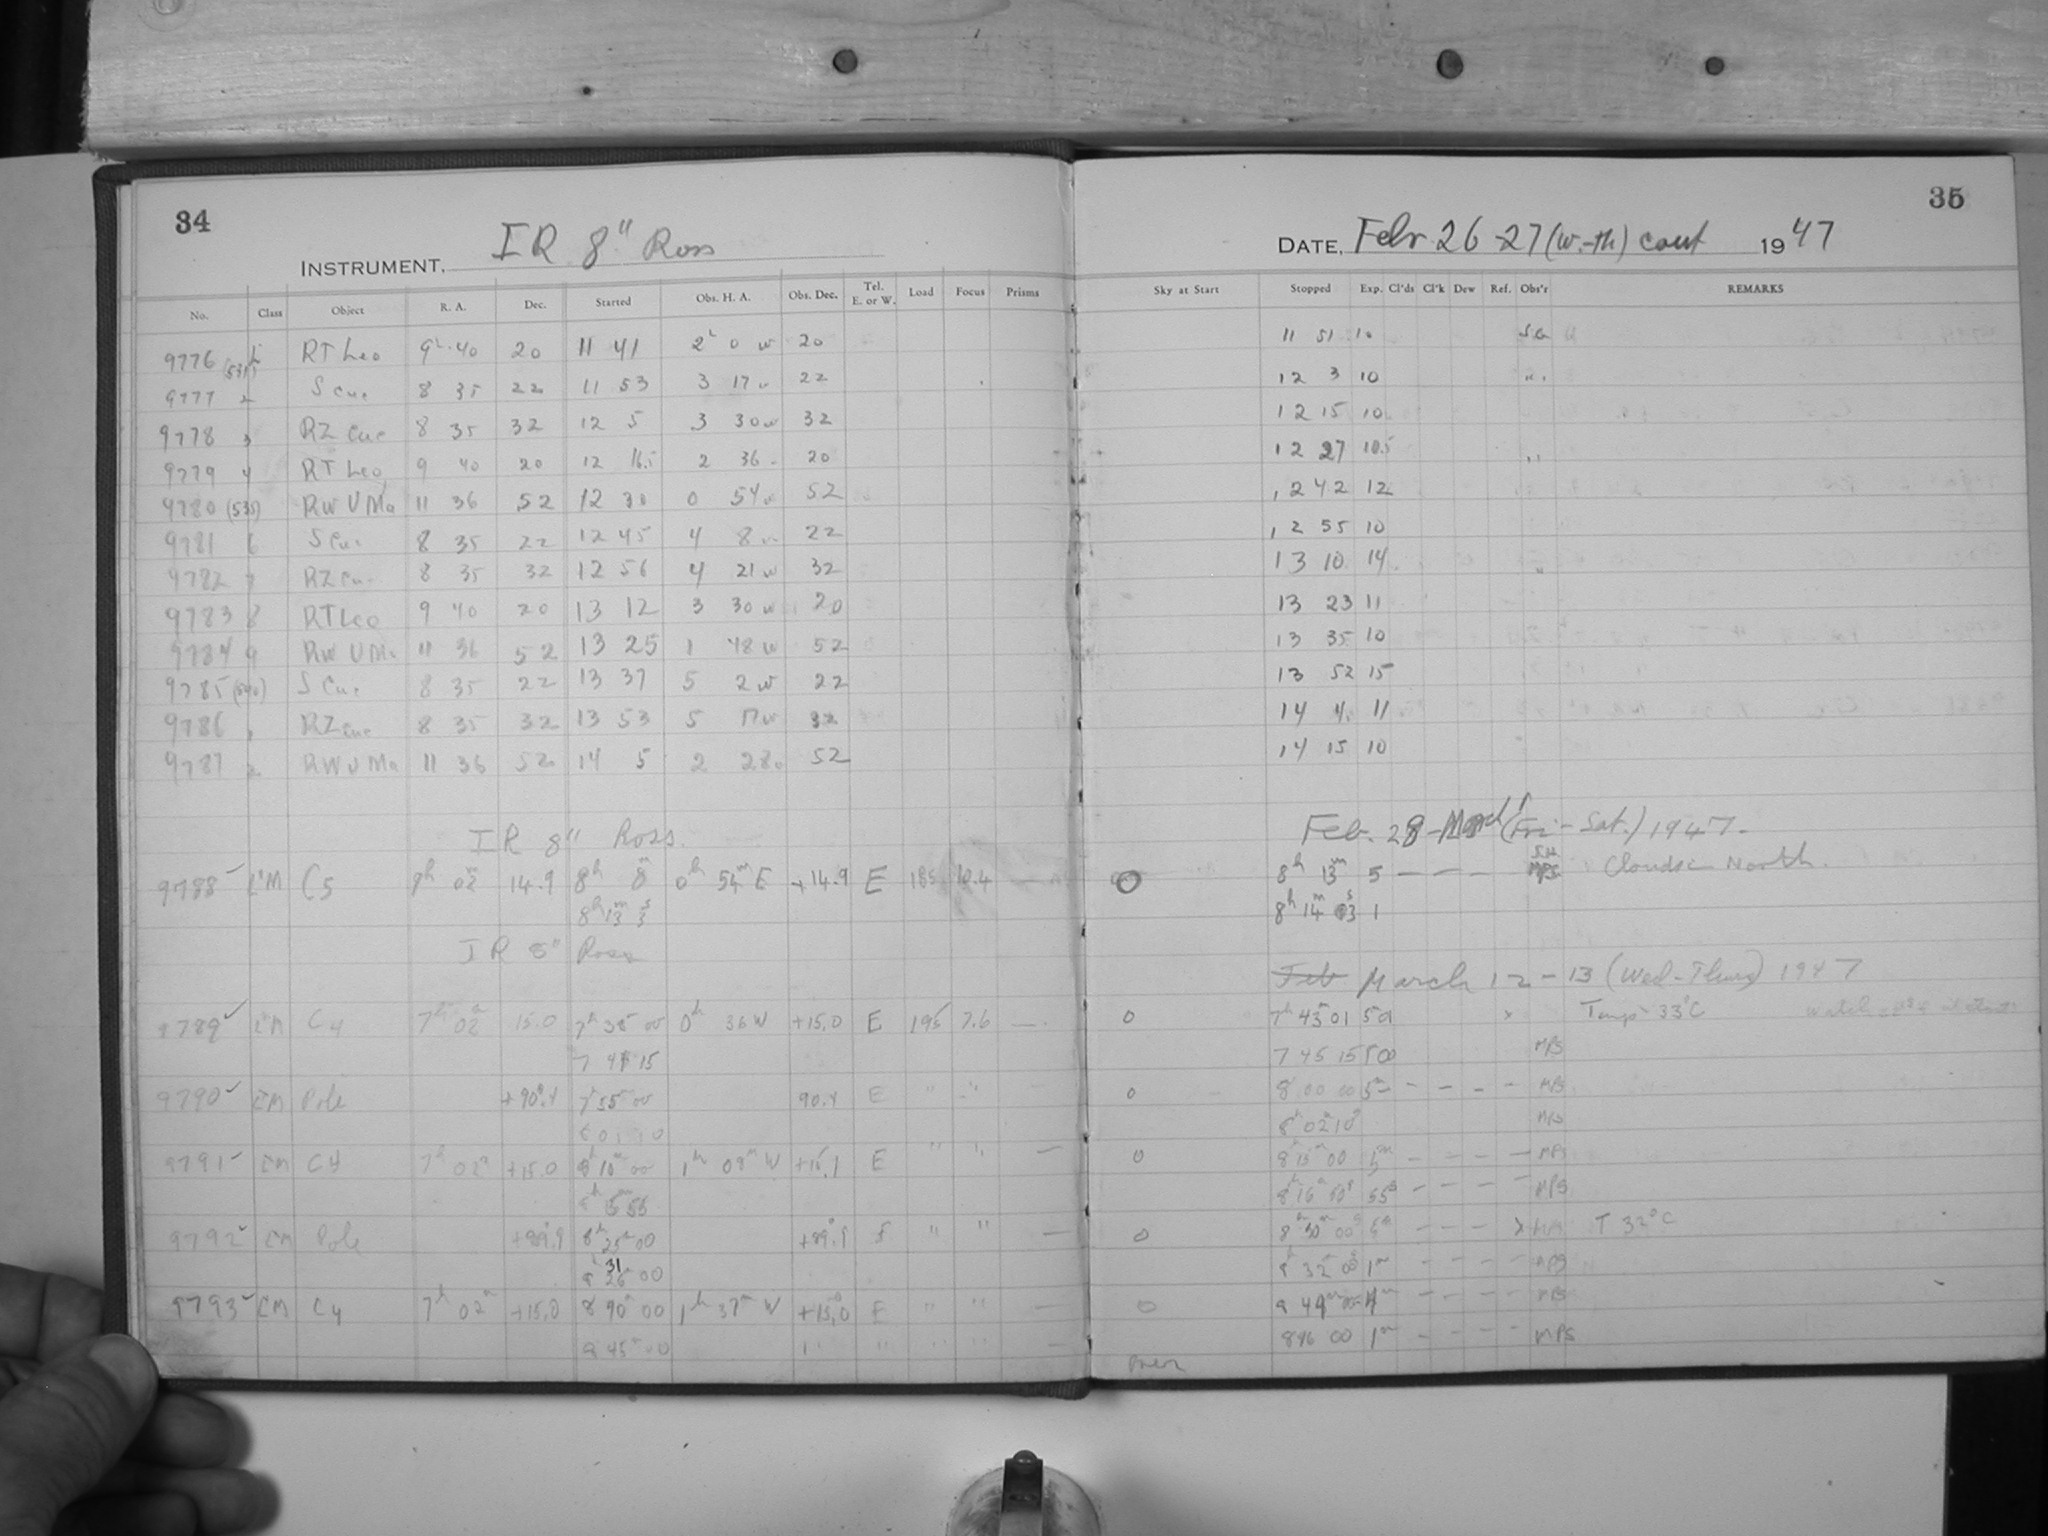 34
INSTRUMENT, IR 8" Ross
No. Class Object R. A. Dec. Started Obs. H. A. Obs. Dec. Tel. E. or W. Load Focus Prisms
9776 RT Leo 9 40 20 11 41 2 0 w 20
9777 2 S Cnc 8 35 22 11 53 3 17 w 22
9778 3 RZ Cnc 8 35 32 12 5 3 30 w 32
9779 4 RT Leo 9 40 20 12 16.5 2 36 20
9780 (535) RW U Ma 11 36 52 12 30 0 54 w 52
9781 6 S Cnc 8 35 22 12 45 4 8 w 22
9782 7 RZ Cnc 8 35 32 12 56 4 21 w 32
9783 8 RT Leo 9 40 20 13 12 3 30 w 20
9784 9 RW U Ma 11 36 52 13 25 1 48 w 52
9785 (540) S Cnc 8 35 22 13 37 5 2 w 22
9786 1 RZ Cnc 8 35 32 13 53 5 17 w 32
9787 2 RW U Ma 11 36 52 14 5 2 28 52
IR 8" Ross
9788 CM C5 02 14.9 8h 8m 0h 54m E +14.9 E 10.4
8h 13m 3s
IR 8" Ross
9789 CM C4 7h 02m 15.0 7h 38 00 0h 36 W +15.0 E 195 7.6 —
7 44 15
9790 CM Pole +90°.4 7h 55 00 90.4 E " "
9791 CM C4 7h 02m +15.0 8h 10m 00 1h 09m W +15.1 E " " —
9792 CM Pole +89.9 8h 25m 00 +89.9 E " " —
31
26 00
9793 CM C4 7h 02m +15.0 8 40m 00 1h 37m W +15.0 E " " —
45m 00 " " " —
35
DATE, Febr 26-27 (W.-Th) cont 1947
Sky at Start Stopped Exp. Cl'ds Cl'k Dew Ref. Obs'r REMARKS
11 51 10
12 3 10 "
12 15 10
12 27 10.5 "
12 42 12
12 55 10
13 10 14 "
13 23 11
13 35 10
13 52 15
14 4 11
14 15 10
Feb. 28 - March 1 (Fri - Sat.) 1947
0 8h 13m 5 — — — MPS Clouds in North.
8h 14m 03s 1
Feb March 12 - 13 (Wed - Thurs) 1947
0 7h 43m 01 x Temp 33°C
7 45 15 MPS
0 8 00 00 5m — — — — MPS
8h 02m 10s MPS
0 8 15m 00 5m — — — — MPS
8h 16m 50s 55s — — — — MPS
0 8h 30m 00 5m — — — x T 32°C
8h 32m 00 1m — — — — MPS
0 44m — — — — MPS
846 00 1m — — — — MPS
Over